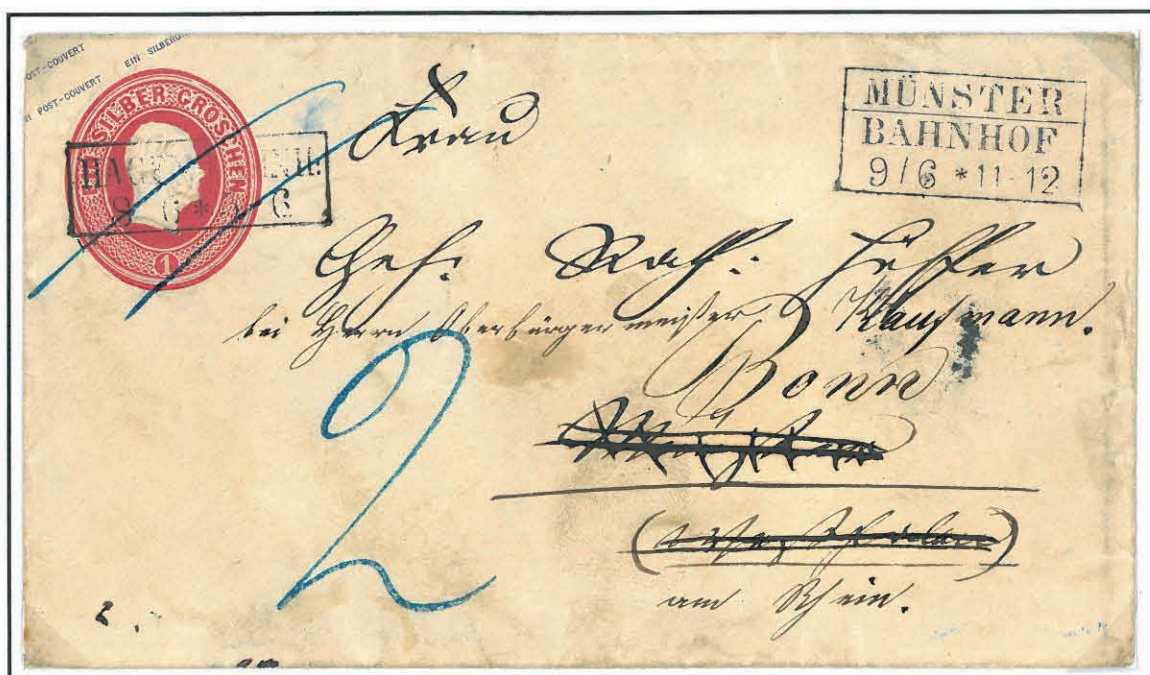 POST-COUVERT EIN SILBERGR
POST-COUVERT
SILBER GROSCHEN
1
HAG EN.H.
9 6 * 6
MÜNSTER
BAHNHOF
9/6 * 11-12
Frau
Geh. Rath. Hüffer
bei Herrn Oberbürgermeister Kaufmann.
Bonn
am Rhein.
2
2.